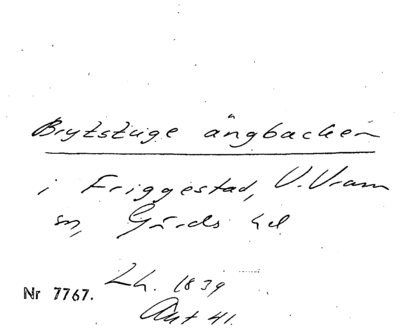 Brytstuge ängbacken
i Friggestad, V. Vram
sn, Gärds hd
Lh. 1839
Nr 7767.
Ant 41.